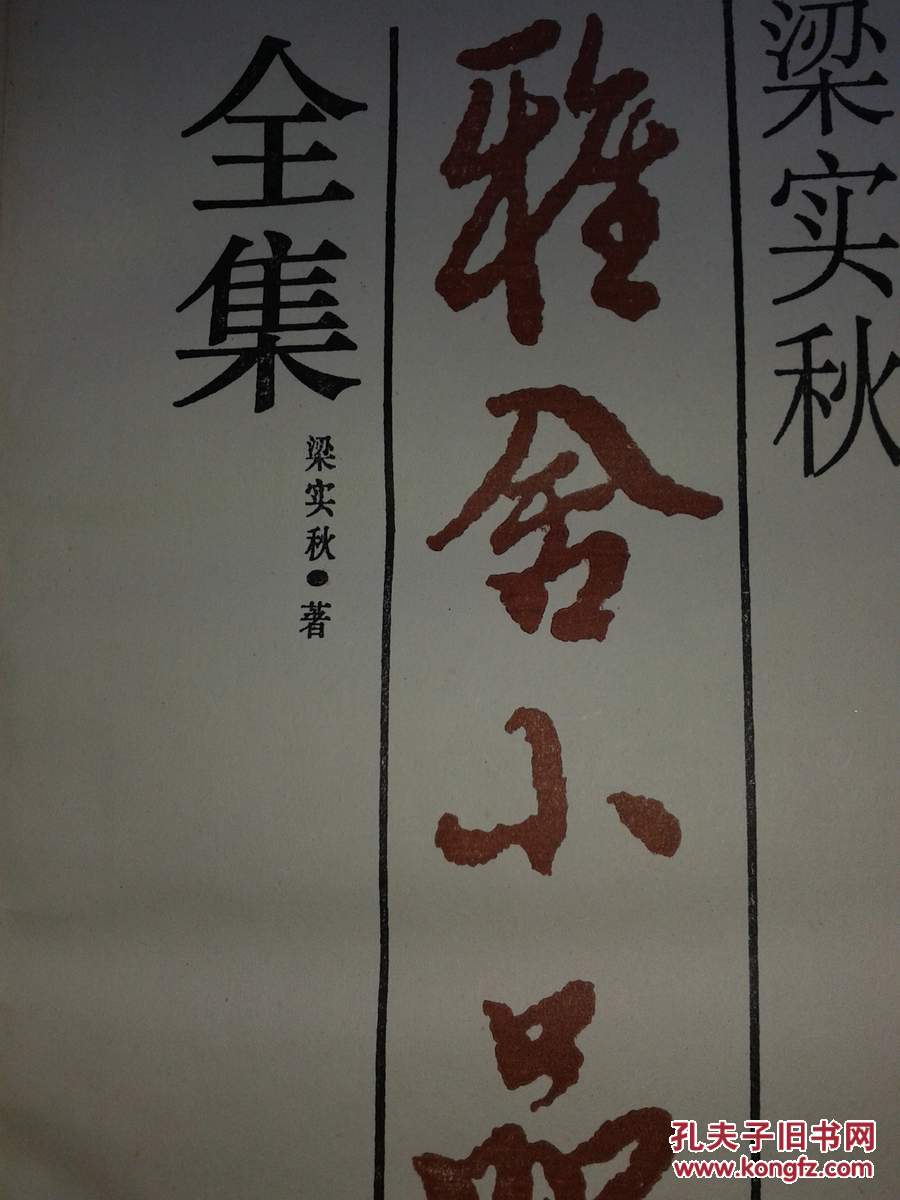 梁实秋
雅舍小品
全集
梁实秋·著
孔夫子旧书网
www.kongfz.com